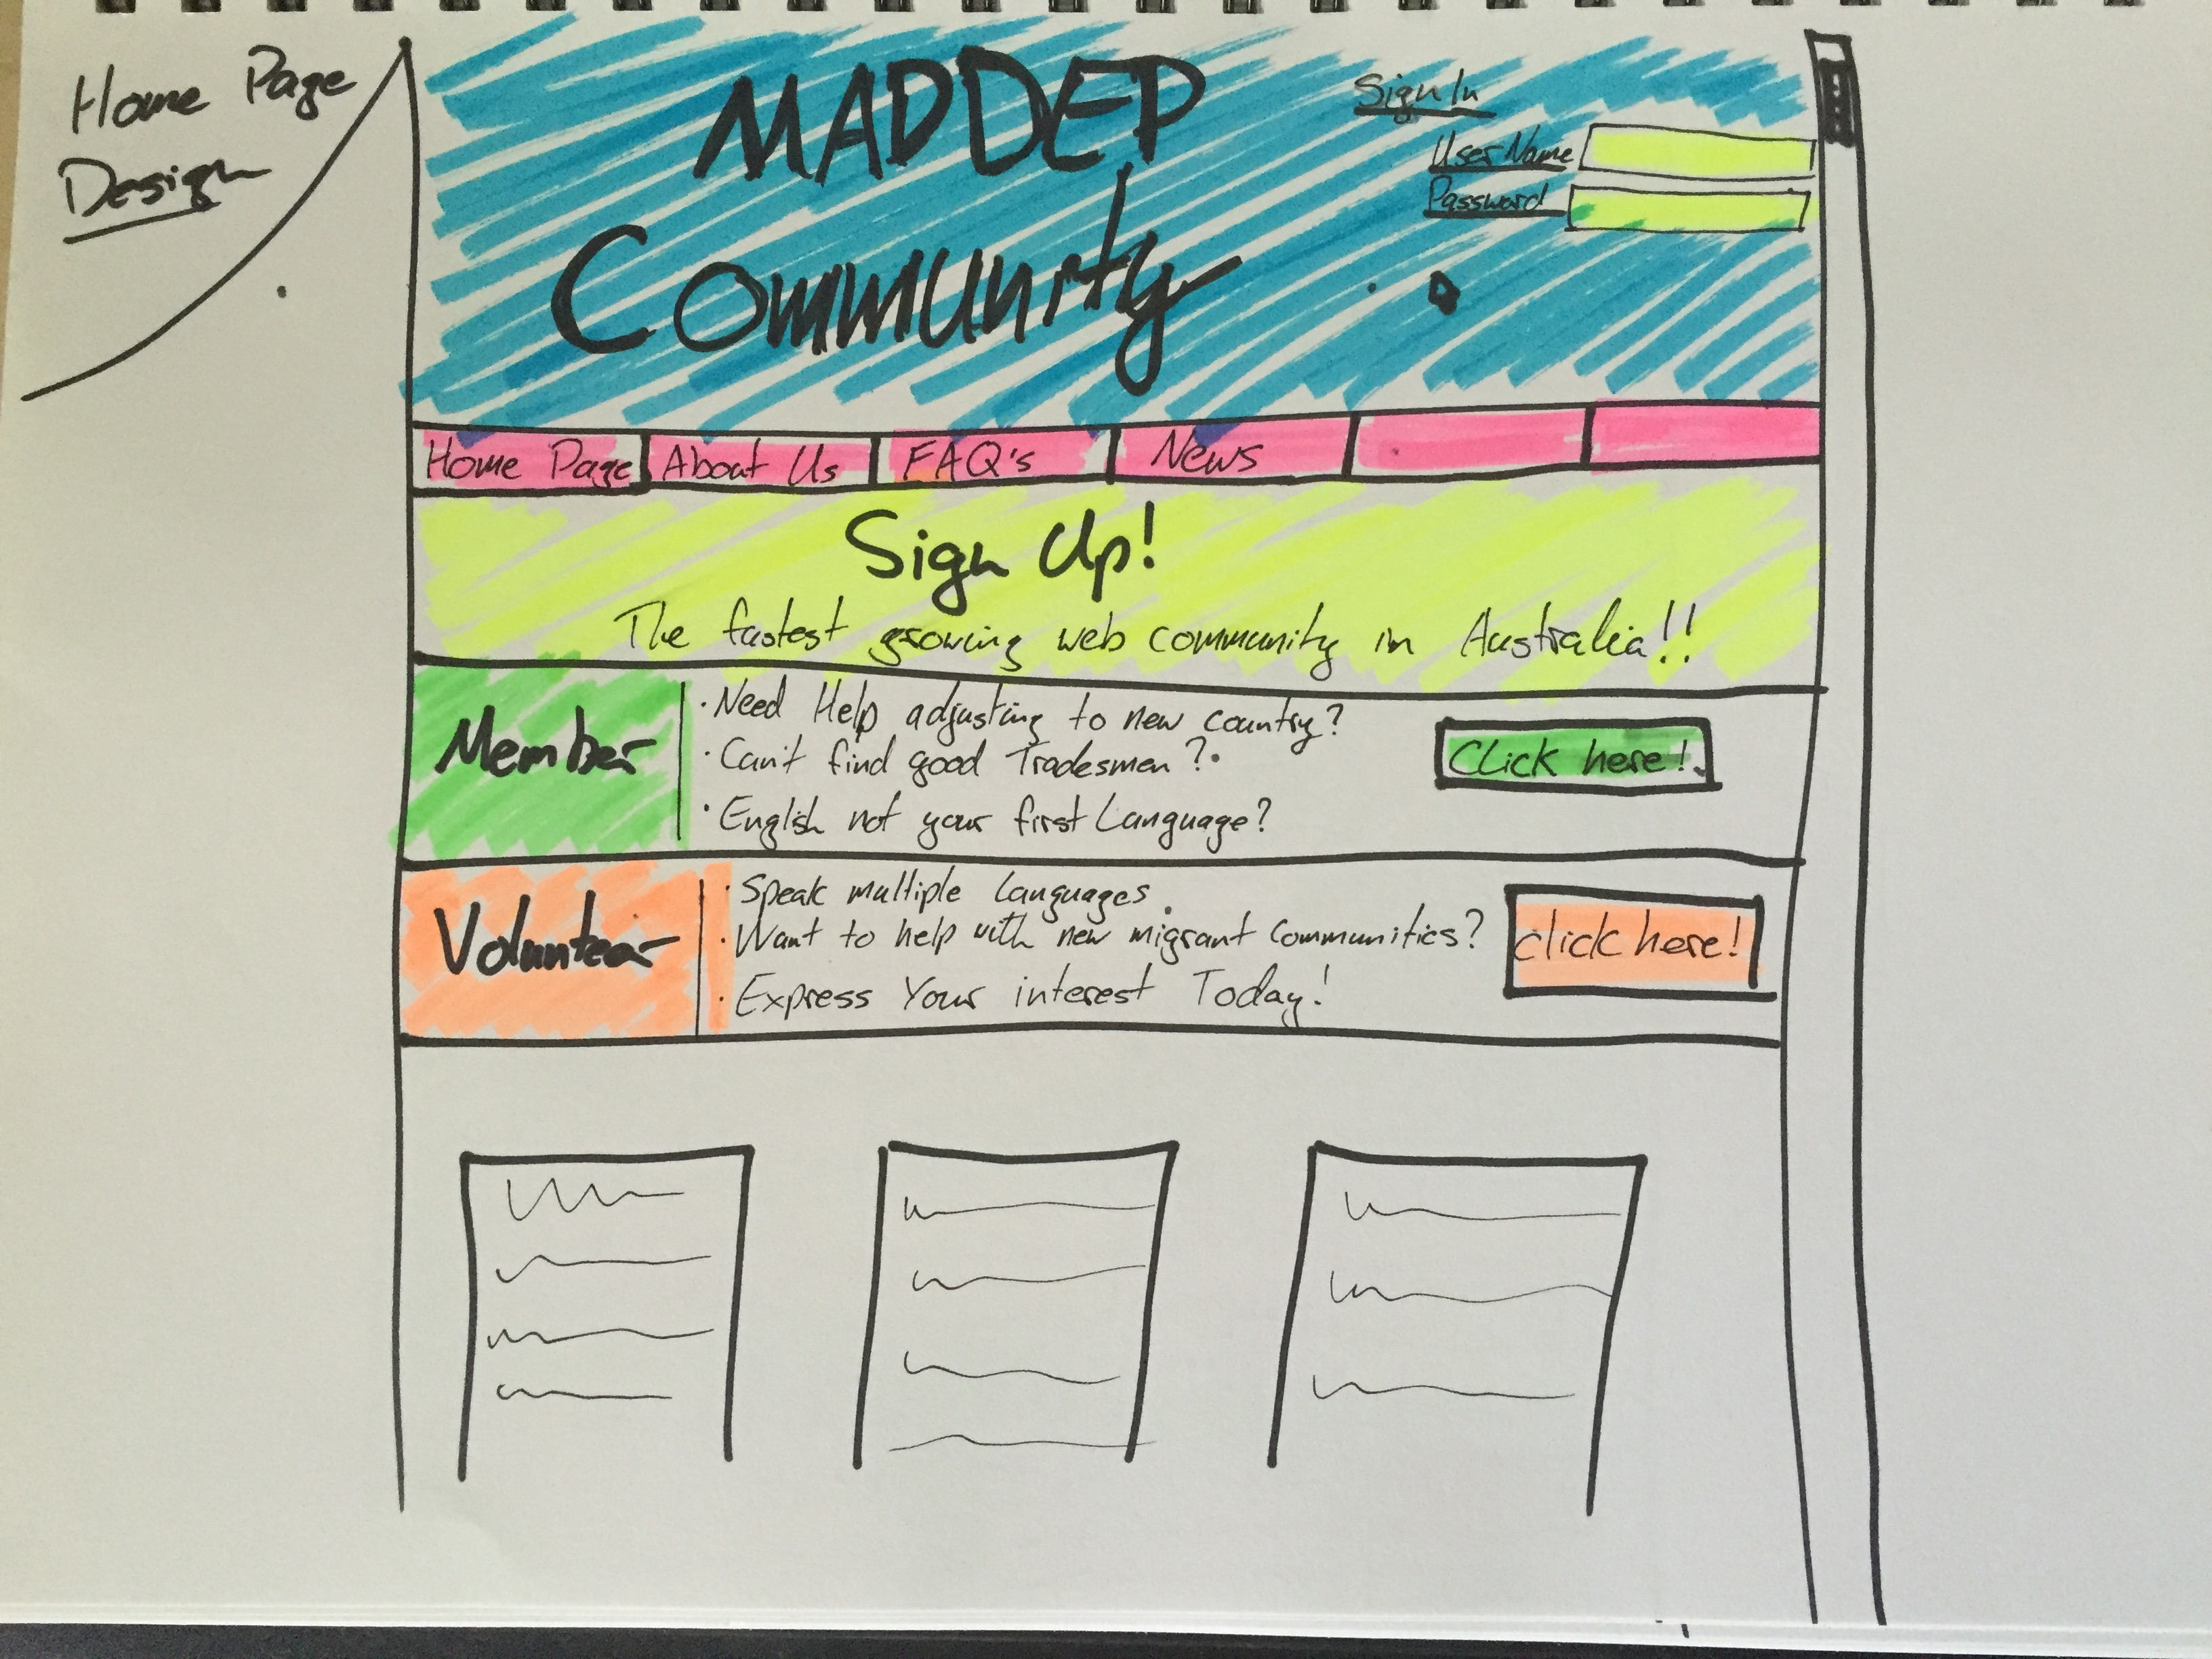 Home Page
Design
MADDEP
Community
Sign In
User Name
Password
Home Page
About Us
FAQ's
News
Sign Up!
The fastest growing web community in Australia!!
Member
· Need Help adjusting to new country?
· Can't find good Tradesmen?
· English not your first Language?
Click here!
Volunteer
· Speak multiple languages.
· Want to help with new migrant Communities?
· Express Your interest Today!
click here!